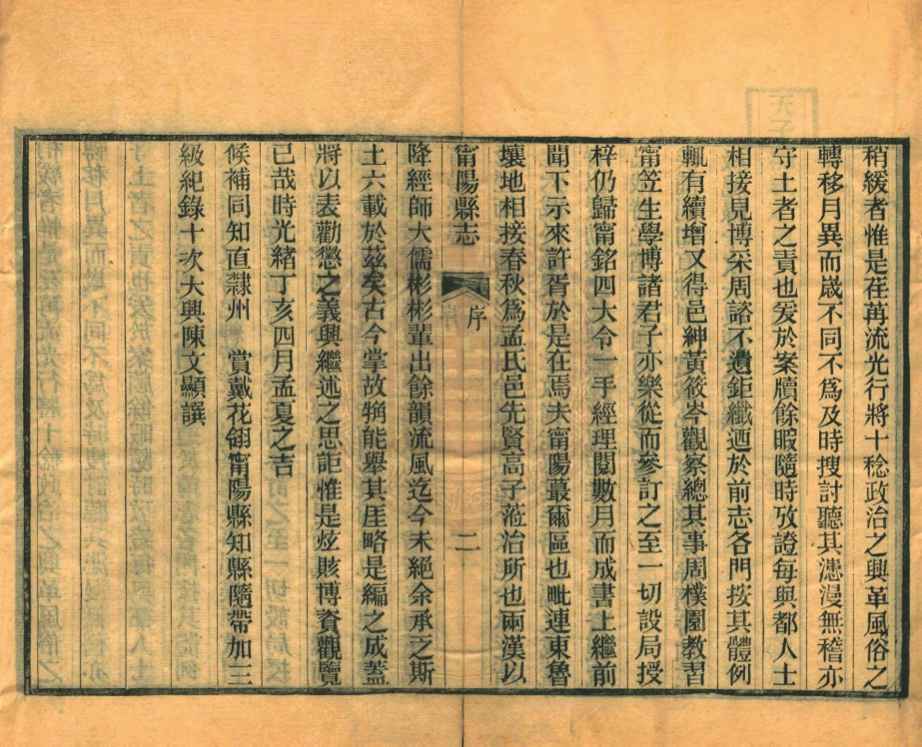 稍緩者惟是荏苒流光行將十稔政治之興革風俗之
轉移月異而歲不同不為及時搜討聽其漶漫無稽亦
守土者之責也爰於案牘餘暇隨時攷證每與都人士
相接見博采周諮不遺鉅纖迺於前志各門按其體例
輒有續增又得邑紳黃筱岑觀察總其事周樸園教習
甯笠生學博諸君子亦樂從而參訂之至一切設局授
梓仍歸甯銘四大令一手經理閱數月而成書上繼前
聞下示來許胥於是在焉夫甯陽蕞爾區也毗連東魯
壤地相接春秋為孟氏邑先賢高子蒞治所也兩漢以
甯陽縣志 序 二
降經師大儒彬彬輩出餘韻流風迄今未絕余承乏斯
土六載於茲矣古今掌故犓能舉其厓略是編之成蓋
將以表勸懲之義興繼述之思詎惟是炫賅博資觀覽
已哉時光緒丁亥四月孟夏之吉
候補同知直隸州 賞戴花翎甯陽縣知縣隨帶加三
級紀錄十次大興陳文顯譔